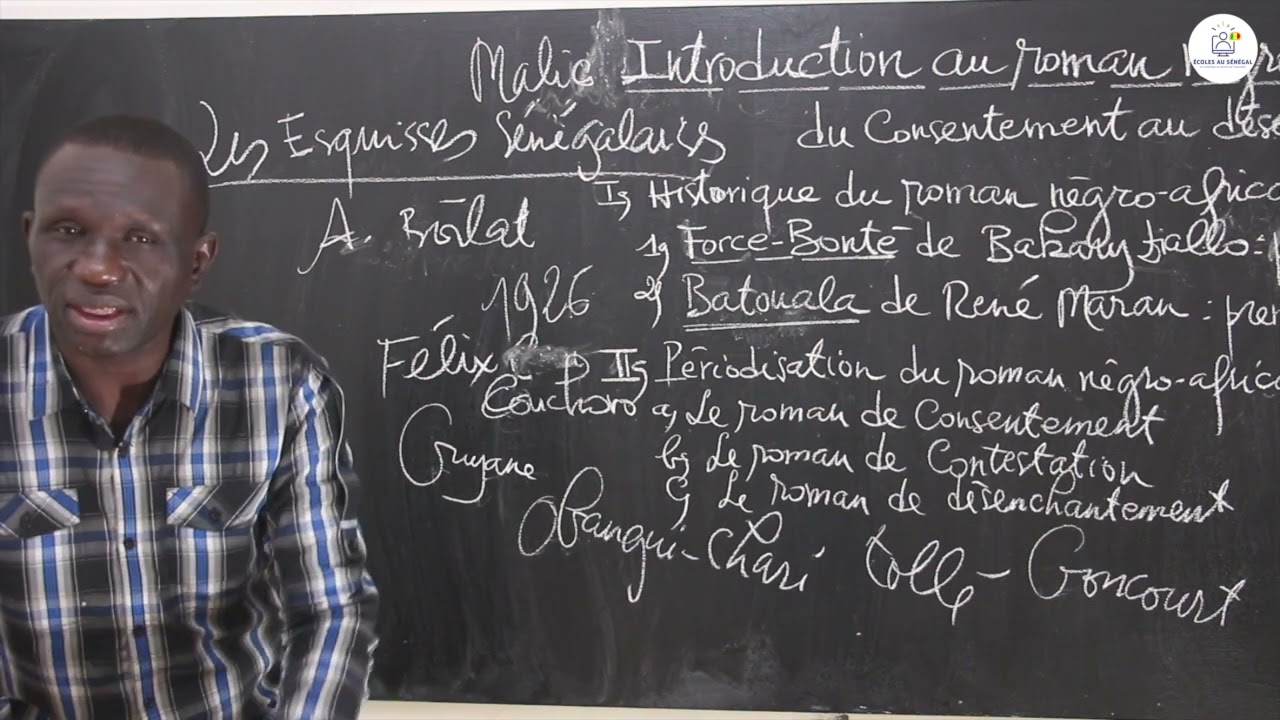 Malic Introduction au roman négr
Les Esquisses Sénégalaises
du Consentement au dése
A. Boilat
I) Historique du roman négro-africa
1) Force-Bonté de Bakary Diallo :
1926
2) Batouala de René Maran : prem
Félix
Couchoro
II) Périodisation du roman négro-africa
a) Le roman de Consentement
Guyane
b) Le roman de Contestation
c) Le roman de désenchantement
Obangui-Chari
Goncourt
ÉCOLES AU SÉNÉGAL